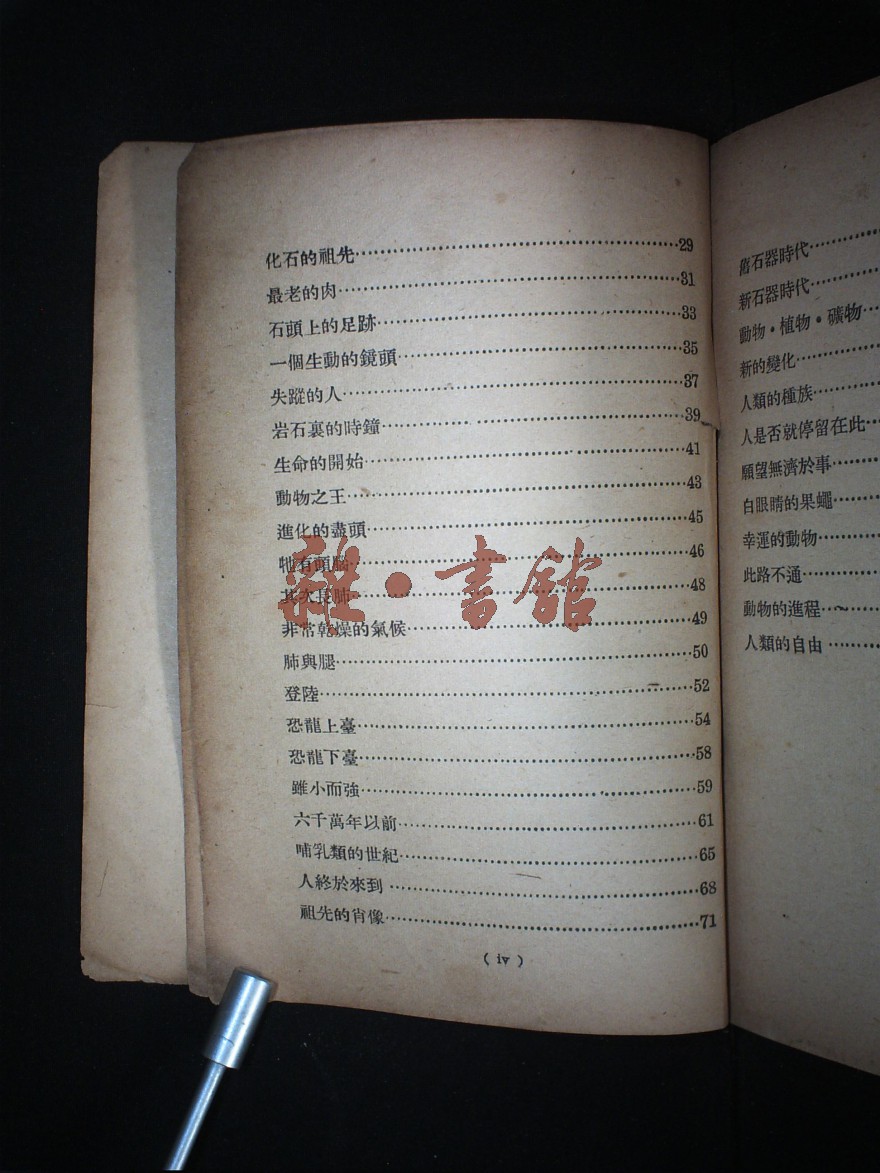 化石的祖先……29
最老的肉……31
石頭上的足跡……33
一個生動的鏡頭……35
失蹤的人……37
岩石裏的時鐘……39
生命的開始……41
動物之王……43
進化的盡頭……45
牠有頭腦……46
其次長肺……48
非常乾燥的氣候……49
肺與腿……50
登陸……52
恐龍上臺……54
恐龍下臺……58
雖小而強……59
六千萬年以前……61
哺乳類的世紀……65
人終於來到……68
祖先的肖像……71
( iv )
舊石器時代……
新石器時代……
動物·植物·礦物……
新的變化……
人類的種族……
人是否就停留在此……
願望無濟於事……
白眼睛的果蠅……
幸運的動物……
此路不通……
動物的進程……
人類的自由……
雜·書館